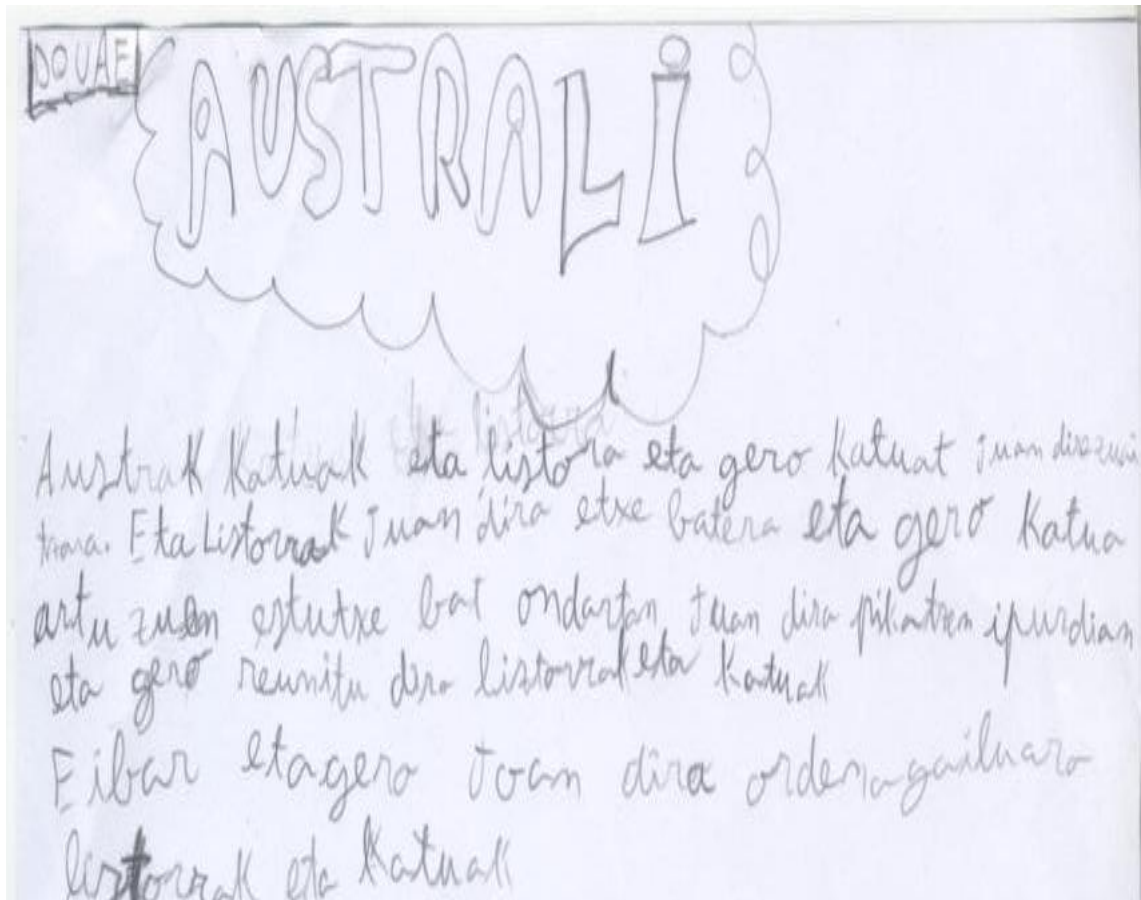 DOUAE
AUSTRALI
Austrak Katuak eta listora eta gero Katuat Juan
Eta Listorrak Juan dira etxe batera eta gero Katua
artu zuen estutxe bat ondartan Juan dira pikatzen ipurdian
eta gero reunitu dira listorrak eta Katuak
Eibar etagero Joan dira ordenagailuaro
listorrak eta Katuak